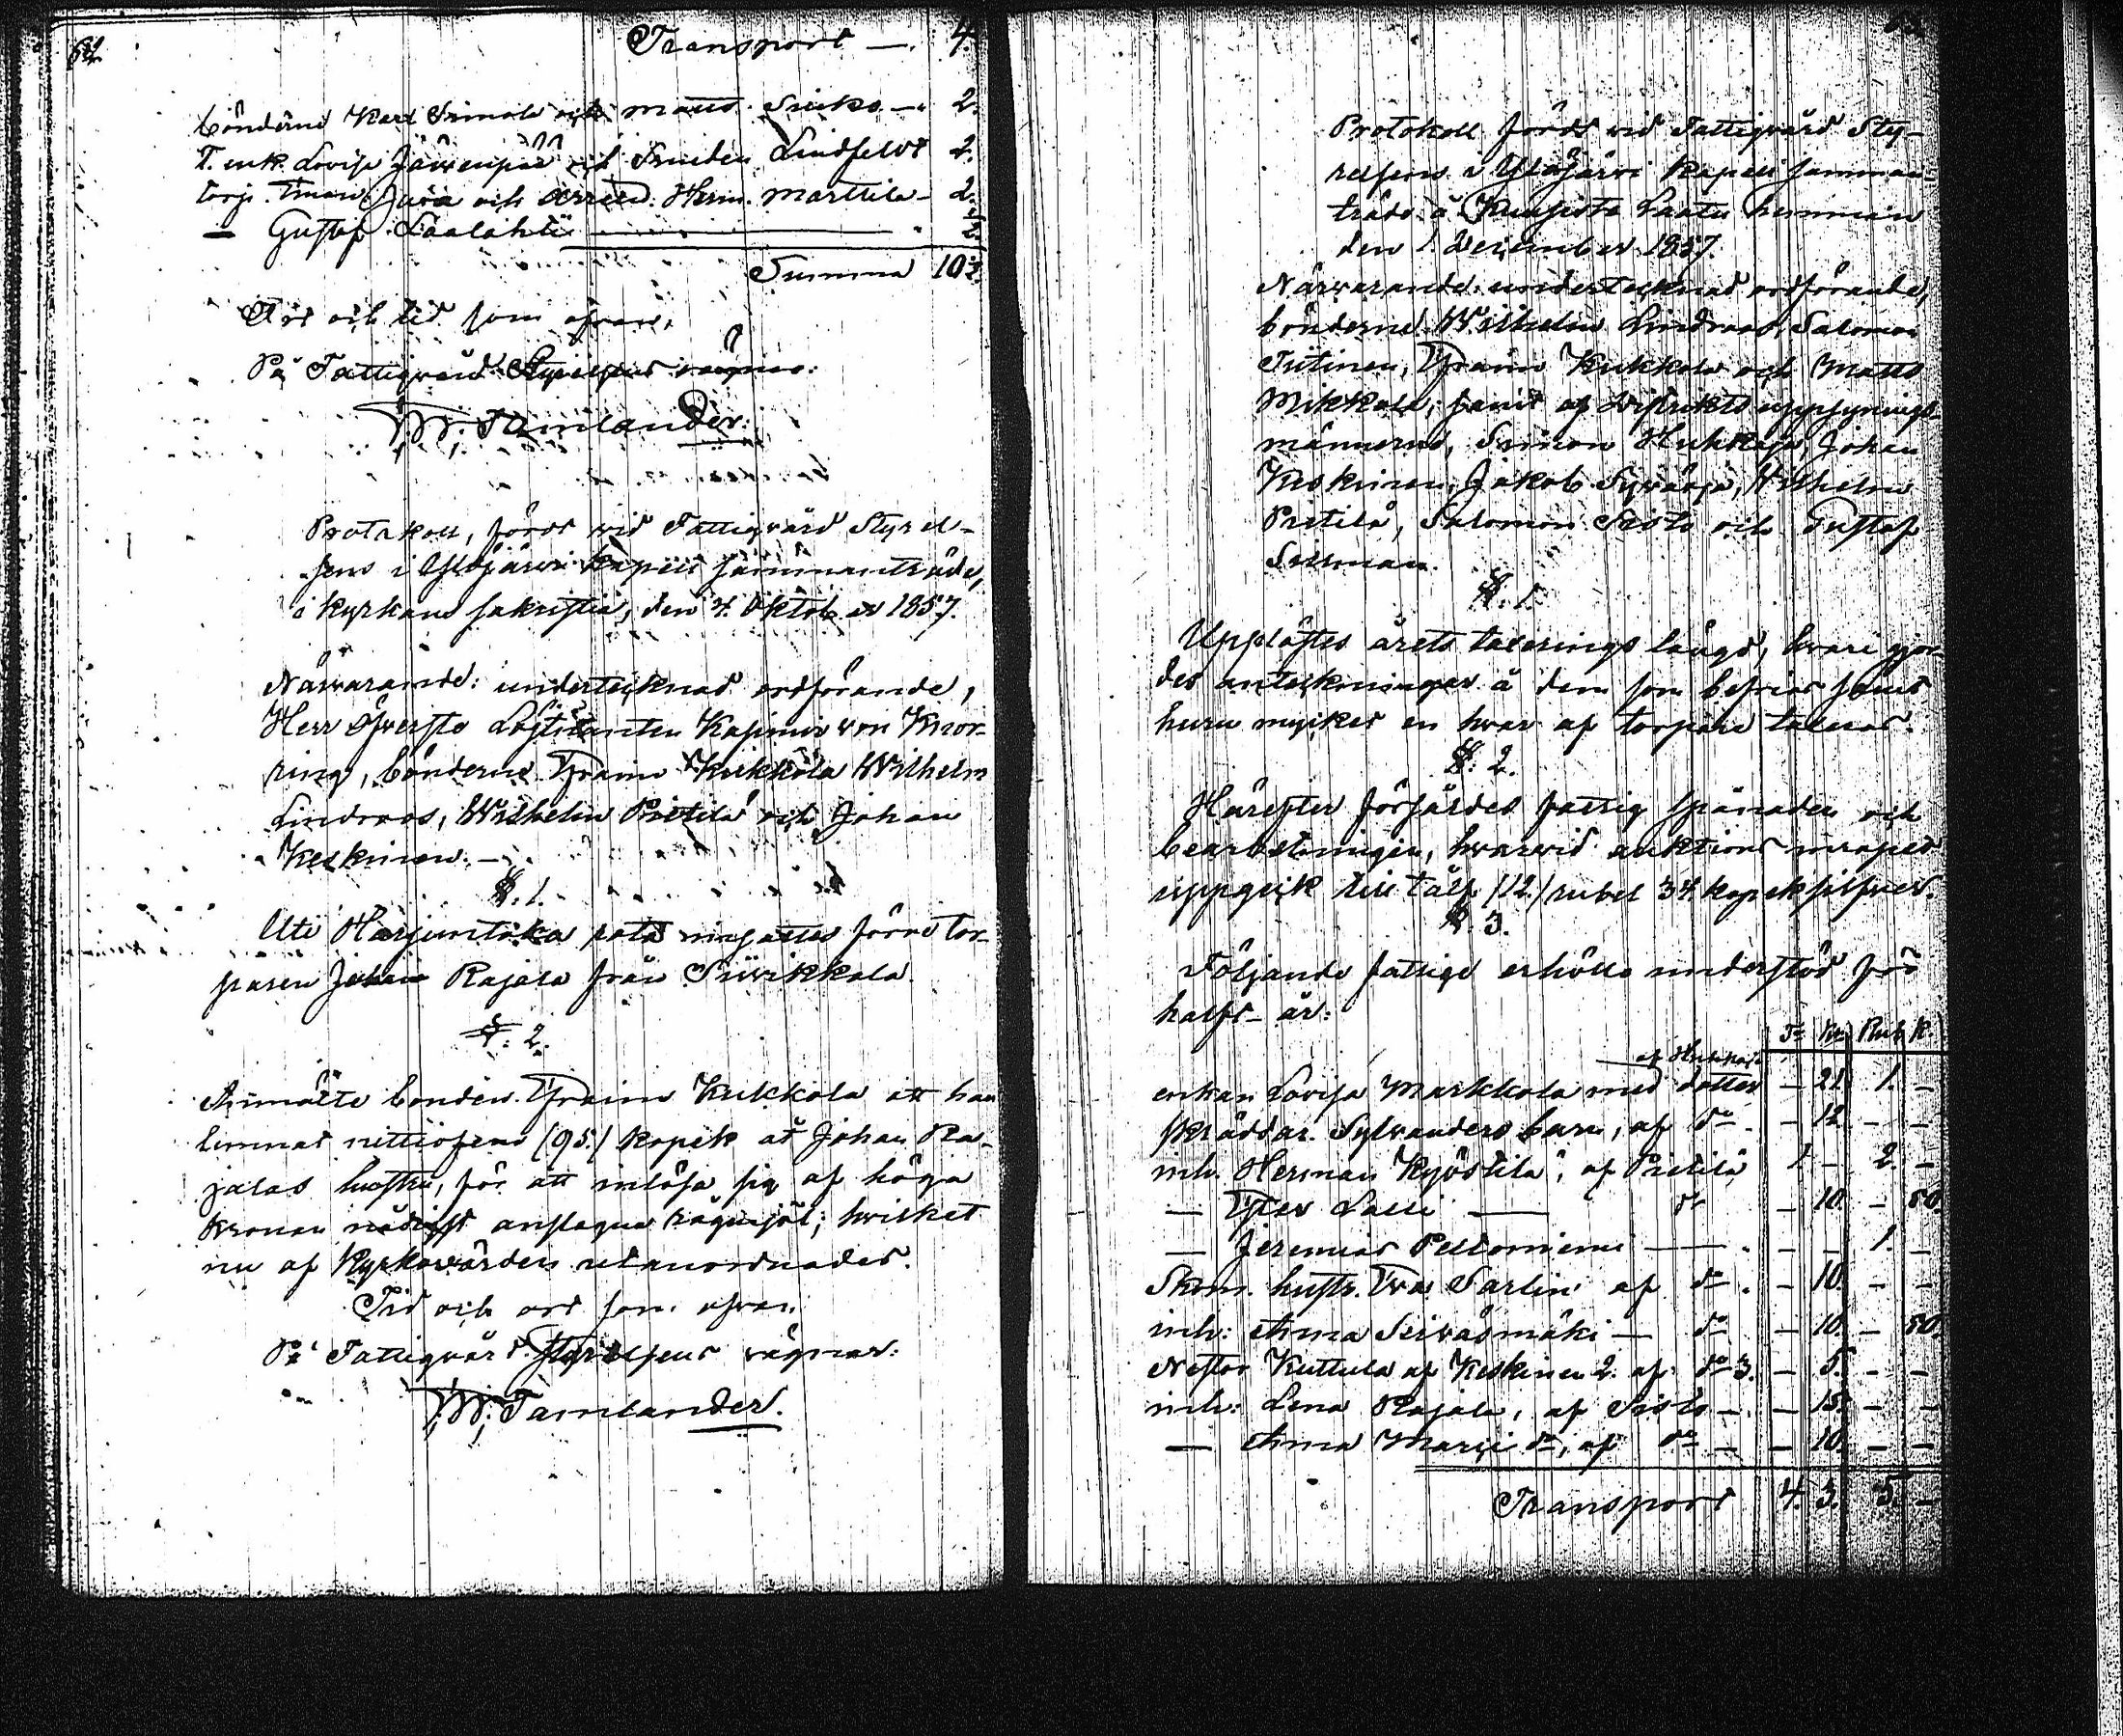 62
Transport —. 4.
bönderne Karl Simola och Matts Siuko —. 2.
T. enk. Lovisa Järvenpää och Smeden Lindfeldt 2.
torp. Juva och Herm. Marttila — 2.
— Gustaf Laalahti — . ½
Summa 10½.
Ort och tid som ofvan.
På Fattigvård Styrelsens vägnar:
W. Tamlander.
Protokoll, fördt vid Fattigvård Styrel-
sens i Ylöjärvi Kapell sammanträde,
i kyrkans sakristia, den 4. Oktober 1857.
Närvarande: undertecknad ordförande,
Herr Öfverste Löjtnanten Kasimir von Knor-
ring, bönderne Efraim Kukkola Wilhelm
Lindroos, Wilhelm Pietilä och Johan
Keskinen. —
§. 1.
Uti Harjuntaka rota förre tor-
paren Johan Rajala från Siivikkala.
§. 2.
Anmälte bonden Efraim Kukkola att han
lemnat nittiofem (95.) kopek åt Johan Ra-
jalas hustru, för att inlösa sig af höga
Kronan nådigst anslagna rågmjöl; hvilket
nu af Kyrkovärden utanordnades.
Tid och ort som ofvan.
På Fattigvård Styrelsens vägnar:
W. Tamlander.
Protokoll fördt vid Fattigvård Sty-
relsens i Ylöjärvi Kapell samman-
träde å Kuusisto Laatu hemman
den 1 December 1857.
Närvarande: undertecknad ordförande,
bönderne Wilhelm Lindroos, Salomon
Tiitinen, Efraim Kukkola och Matts
Mikkola; samt af distrikts uppsynings-
männerne, Simon Huhkaja, Johan
Keskinen, Jakob Syväoja, Wilhelm
Pietilä, Salomon Sisto och Gustaf
§. 1.
Upplästes årets taxerings längd, hvari gjor-
des anteckningar å dem som befrias samt
huru mycket en hvar af torpare taxeras.
§. 2.
Härefter fattig spanaden och
bearbetningen, hvarvid auktions inropet
uppgick till tålf (12.) rubel 34 kopek silfver.
§. 3.
Följande fattige erhöllo understöd för
halft-år:
T. K. Rub. K.
af Huhkaja
enkan Lovisa Markkola med dotter — 21. 1. —
skräddar. Sylvanders barn, af do — 12 — —
inh. Herman Kyöstilä, af Pietilä 1 — 2. —
— Ester Lalli — do — 10. — 50.
— Jeremias Peltoniemi — . — — 1. —
Skom. hustr. Eva Sarlin af do . — 10. — —
inh: Anna Seiväsmäki — do — 10. — 50.
Nestor Kuttula af Keskinen 2. af do 3. — 5. — —
inh: Lena Rajala, af Sisto — . — 15. — —
— Anna Maria do, af do — — 10. — —
Transport 4. 3. 5. —